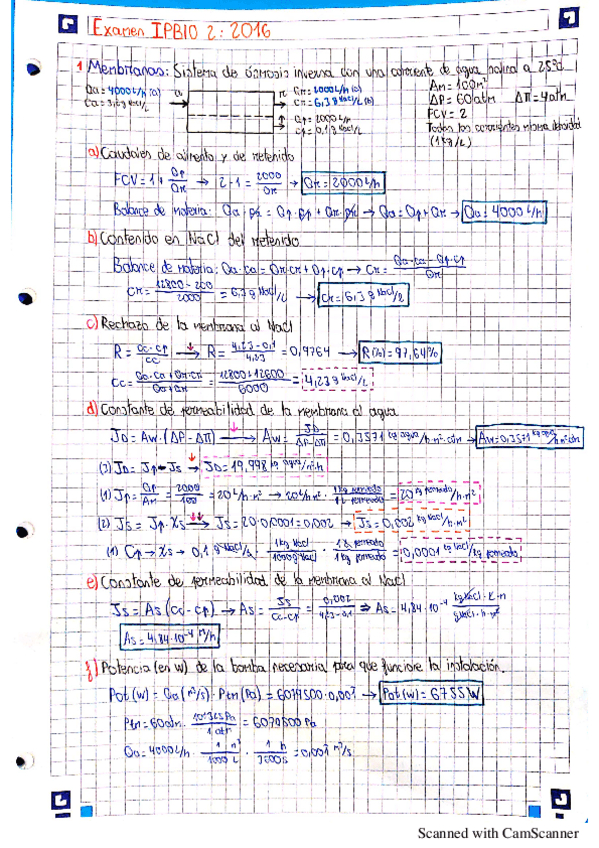 Examen IPBIO 2: 2016
1 Membranas: Sistema de ósmosis inversa con una corriente de agua marina a 25ºC
Qa = 4000 L/h (a)
Ca = 3,2 g NaCl/L
Qr = 2000 L/h (a)
Cr = 6,3 g NaCl/L (b)
Qp = 2000 L/h
Cp = 0,1 g NaCl/L
Am = 100 m²
ΔP = 60 atm ΔΠ = 4 atm
FCV = 2
Todas las corrientes misma densidad
(1 kg/L)
a) Caudales de alimento y de retenido
FCV = 1 + Qp/Qr → 2 - 1 = 2000/Qr → Qr = 2000 L/h
Balance de materia: Qa · ρa = Qp · ρp + Qr · ρr → Qa = Qp + Qr → Qa = 4000 L/h
b) Contenido en NaCl del retenido
Balance de materia: Qa · Ca = Qr · Cr + Qp · Cp → Cr = Qa · Ca - Qp · Cp / Qr
Cr = 12800 - 200 / 2000 = 6,3 g NaCl/L → Cr = 6,3 g NaCl/L
c) Rechazo de la membrana al NaCl
R = Cc - Cp / Cc → R = 4,23 - 0,1 / 4,23 = 0,9764 → R(%) = 97,64%
Cc = Qa · Ca + Qr · Cr / Qa + Qr = 12800 + 12600 / 6000 = 4,23 g NaCl/L
d) Constante de permeabilidad de la membrana al agua
JD = Aw · (ΔP - ΔΠ) → Aw = JD / ΔP - ΔΠ = 0,3571 kg agua/h·m²·atm → Aw = 0,3571 kg agua/h·m²·atm
(3) JD = Jp - Js → JD = 19,998 kg agua/m²·h
(1) Jp = Qp/Am = 2000/100 = 20 L/h·m² → 20 L/h·m² · 1 kg permeado / 1 L permeado = 20 kg permeado/h·m²
(2) Js = Jp · Xs → Js = 20 · 0,0001 = 0,002 → Js = 0,002 kg NaCl/h·m²
(1) Cp → Xs → 0,1 g NaCl/L · 1 kg NaCl / 1000 g NaCl · 1 L permeado / 1 kg permeado = 0,0001 kg NaCl/kg permeado
e) Constante de permeabilidad de la membrana al NaCl
Js = As (Cc - Cp) → As = Js / Cc - Cp = 0,002 / 4,23 - 0,1 ⇒ As = 4,84 · 10⁻⁴ kg NaCl · L · m / g NaCl · h · m²
As = 4,84 · 10⁻⁴ m/h
f) Potencia (en W) de la bomba necesaria para que funcione la instalación.
Pot (W) = Qa (m³/s) · Pm (Pa) = 6079500 · 0,001 → Pot (W) = 6755 W
Pm = 60 atm · 101325 Pa / 1 atm = 6079500 Pa
Qa = 4000 L/h · 1 m³ / 1000 L · 1 h / 3600 s = 0,001 m³/s
Scanned with CamScanner